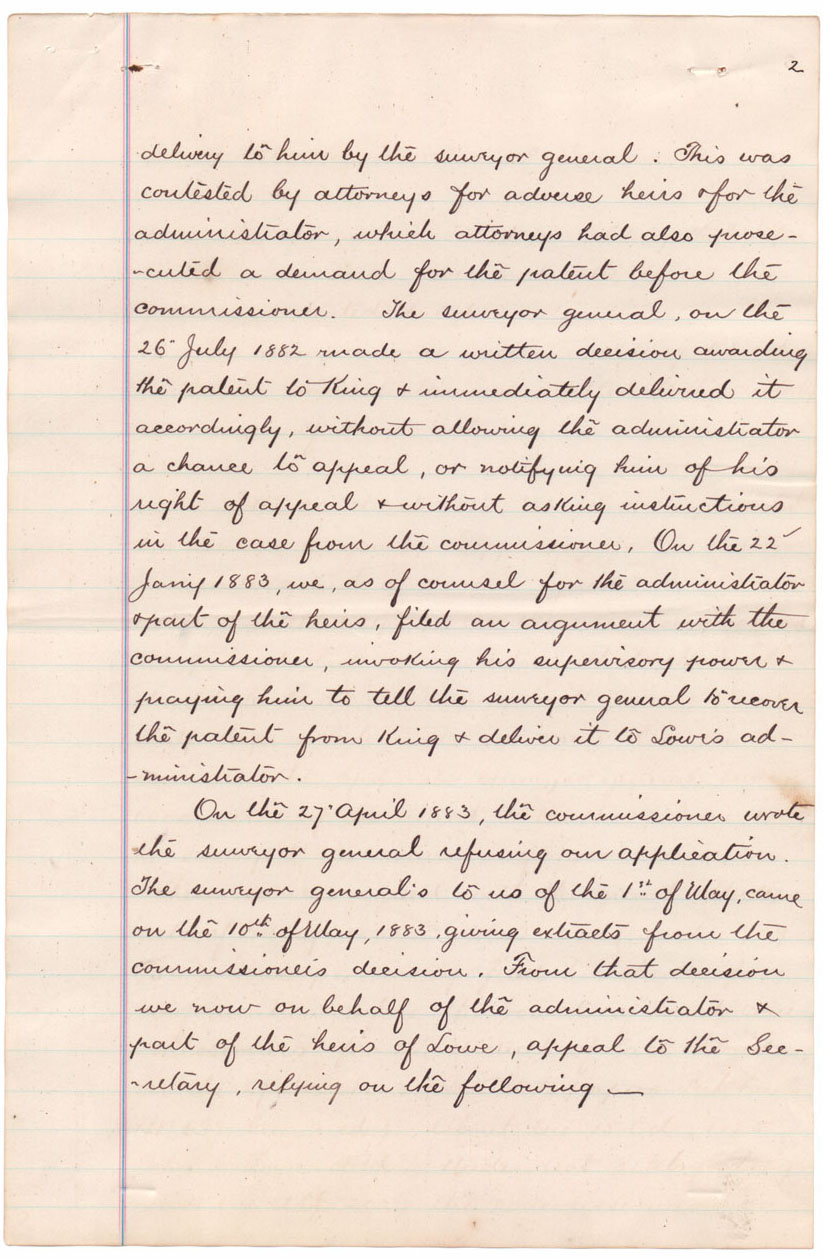 2
delivery to him by the surveyor general. This was
contested by attorneys for adverse heirs & for the
administrator, which attorneys had also prose-
-cuted a demand for the patent before the
commissioner. The surveyor general, on the
26 July 1882 made a written decision awarding
the patent to King & immediately delivered it
accordingly, without allowing the administrator
a chance to appeal, or notifying him of his
right of appeal & without asking instructions
in the case from the commissioner. On the 22
Jan'y 1883, we, as of counsel for the administrator
& part of the heirs, filed an argument with the
commissioner, invoking his supervisory power &
praying him to tell the surveyor general to recover
the patent from King & deliver it to Lowe's ad-
-ministrator.
On the 27 April 1883, the commissioner wrote
the surveyor general refusing our application.
The surveyor general's to us of the 1st of May, came
on the 10th of May, 1883, giving extracts from the
commissioner's decision. From that decision
we now on behalf of the administrator &
part of the heirs of Lowe, appeal to the Sec-
-retary, relying on the following —